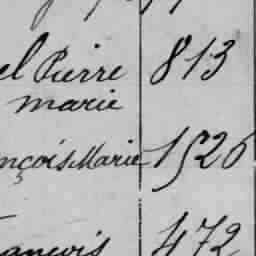 el Pierre 813
marie
nçois Marie 1526
ançois 472